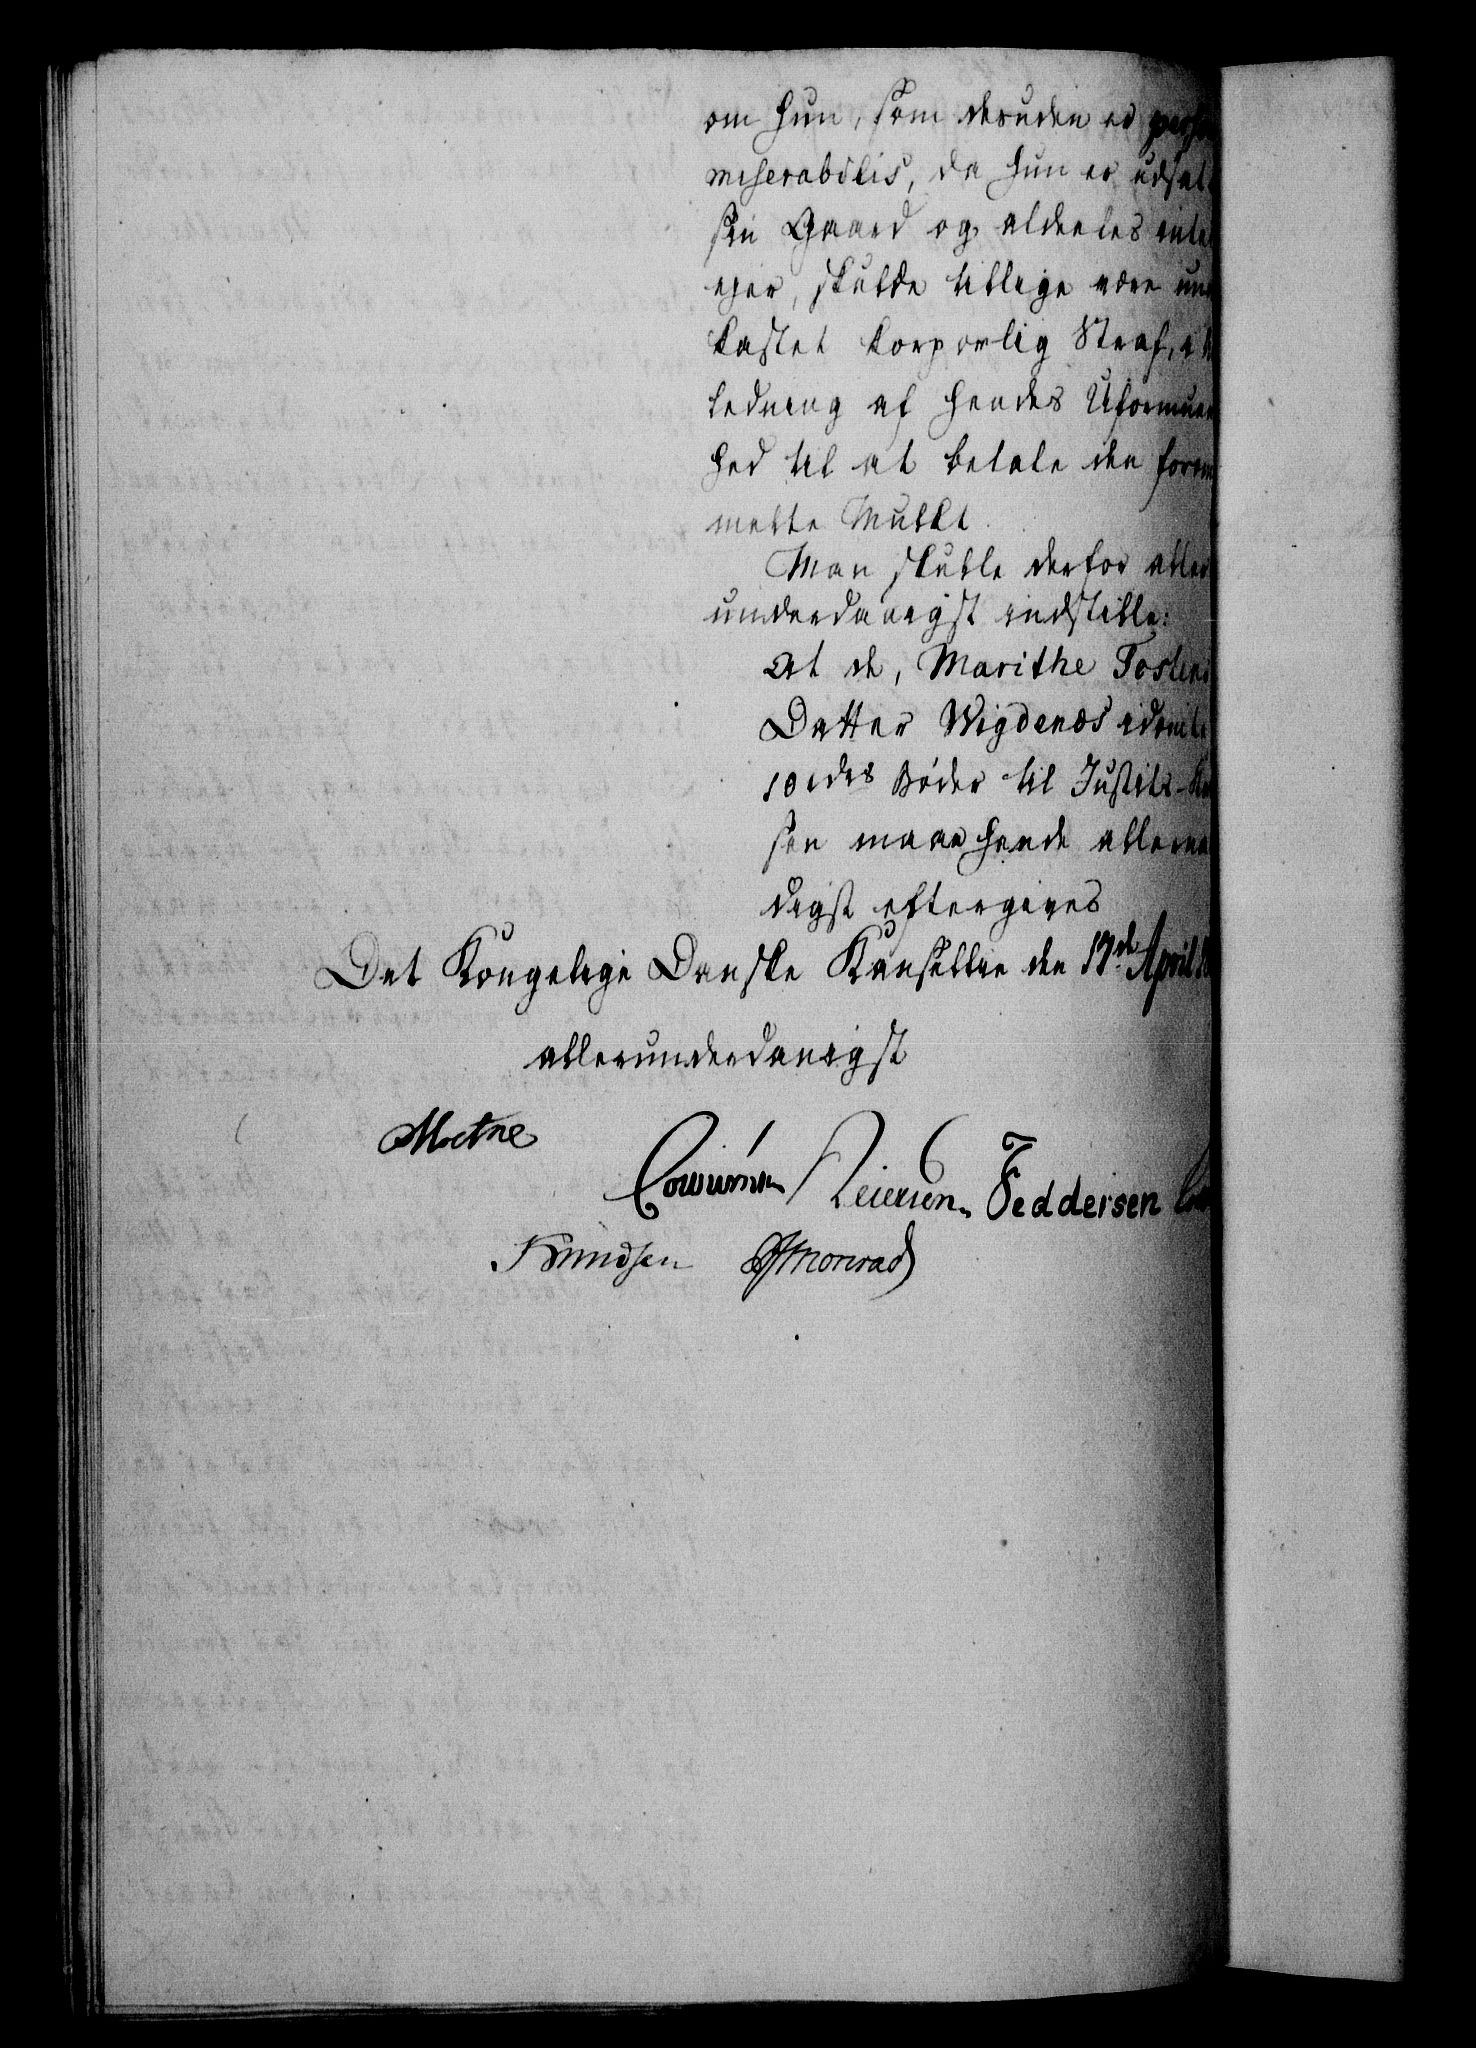 om hun, som desuden er perso
miserabilis, da hun er udsat
sin Gaard og aldeeles inte
ejer, skulde tillige være un
kastet korporlig Straf, i 
ledning af hendes Uformuen
hed til at betale den form
meldte Mulkt.
Man skulle derfor aller
underdanigst indstille:
At de, Marithe Tostens
Datter Wigdenæs idømte
10 rdrs Bøder til Justits-Ka
sen maae hende allernaa
digst eftergives
Det Kongelige Danske Kanselli den 17de April 18
allerunderdanigst
Cowumn Reiersen. Feddersen
Knudsen Monrad